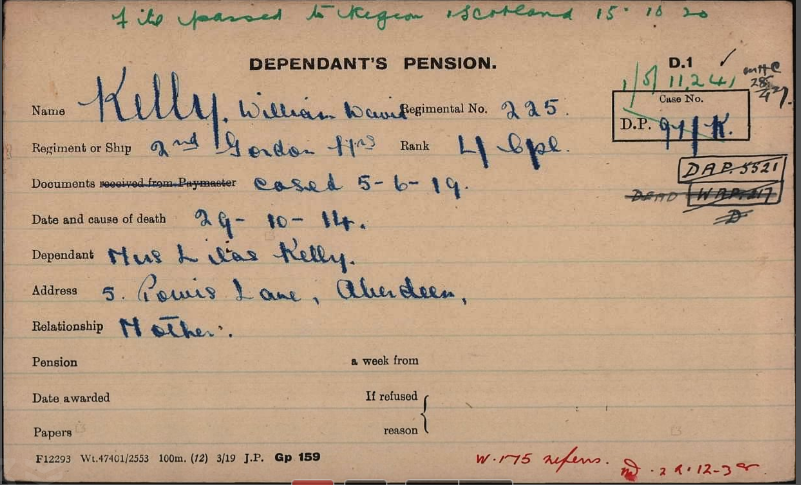 File passed to Region Scotland 15.10.20
DEPENDANT'S PENSION.
D.1
1/S/11,241
Name Kelly, William David Regimental No. 225.
Case No.
D.P. 911 K.
Regiment or Ship 2nd Gordon Hrs Rank L/Cpl.
D.A.P. 5521
Documents received from Paymaster cased 5-6-19.
DEAD W.A.P. 217
D
Date and cause of death 29-10-14.
Dependant Mrs Lilas Kelly.
Address 5. Powis Lane, Aberdeen,
Relationship Mother.
Pension a week from
Date awarded If refused
Papers reason
F12293 Wt.47401/2553 100m. (12) 3/19 J.P. Gp 159
W.175 refers. 29.12.38